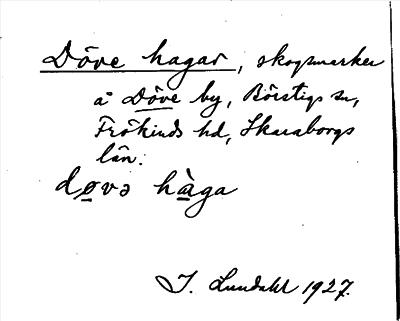 Döve hagar, skogsmarker
å Döve by, Börstigs sn,
Frökinds hd, Skaraborgs
län.
døvə hàga
I. Lundahl 1927.